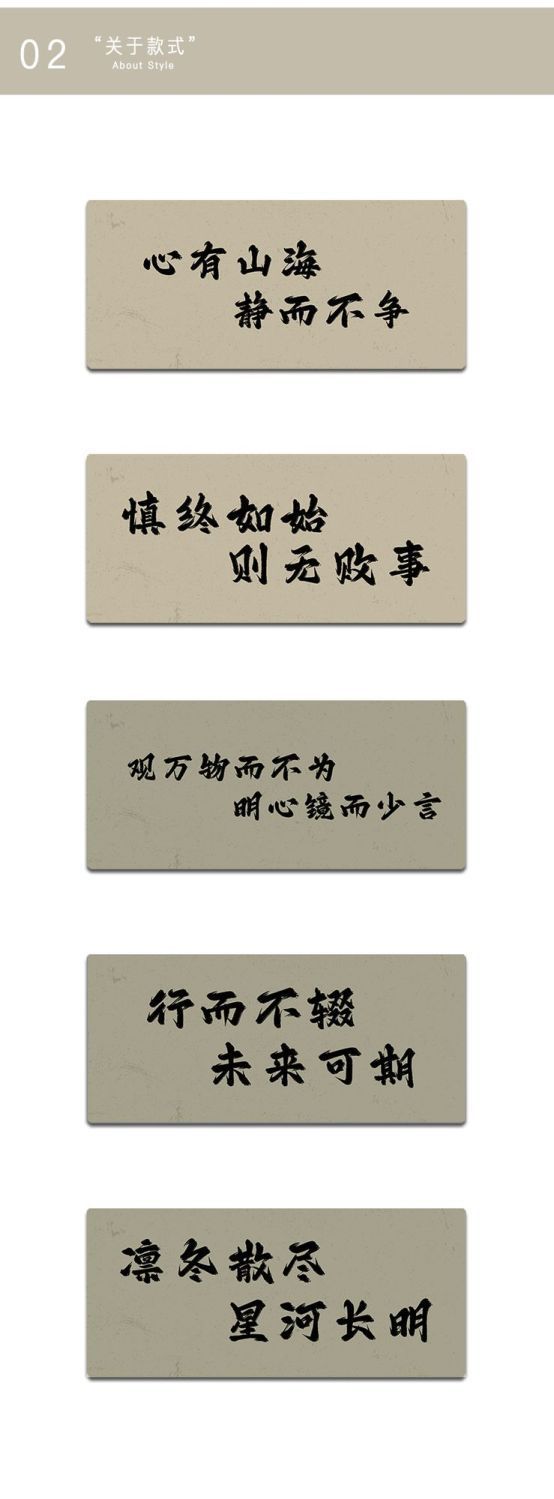 02
“关于款式”
About Style
心有山海
静而不争
慎终如始
则无败事
观万物而不为
明心镜而少言
行而不辍
未来可期
凛冬散尽
星河长明